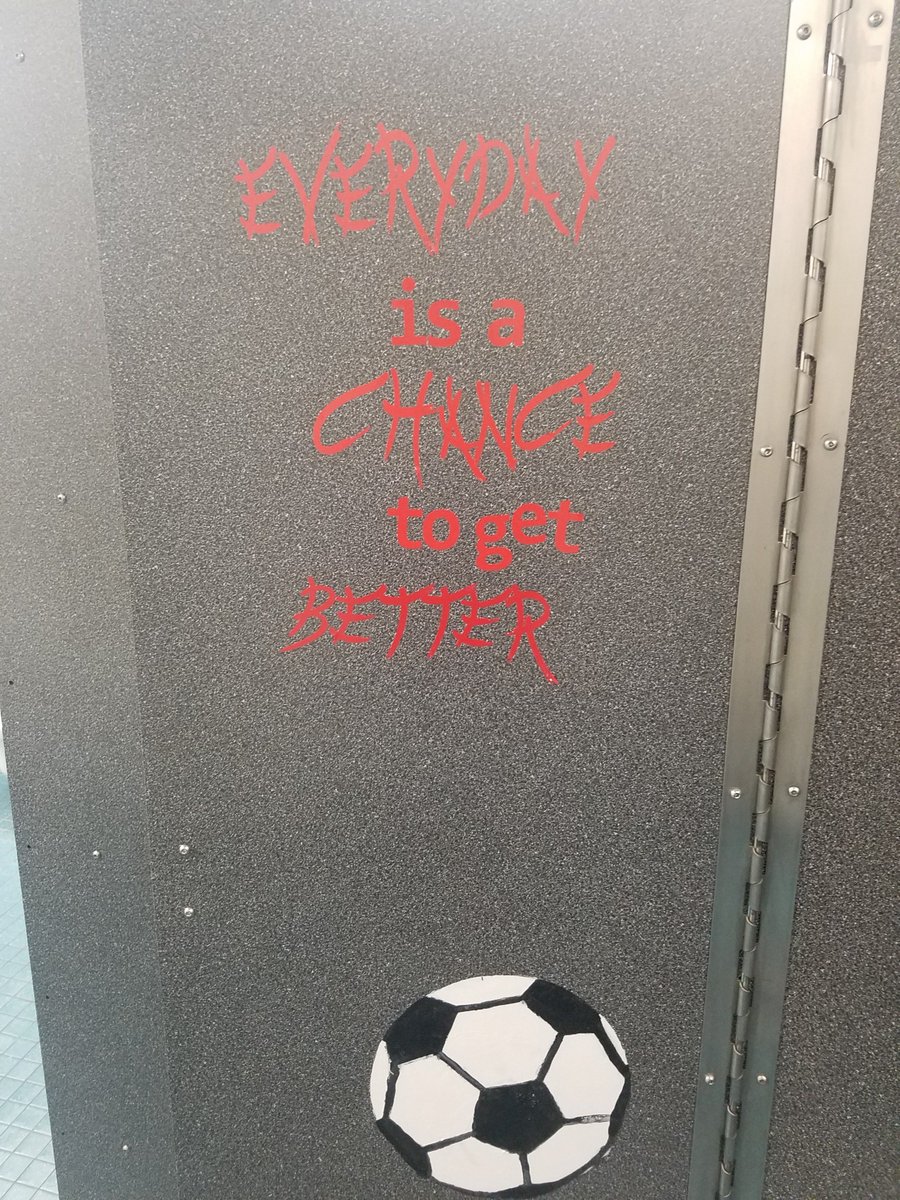 EVERYDAY
is a
CHANCE
to get
BETTER